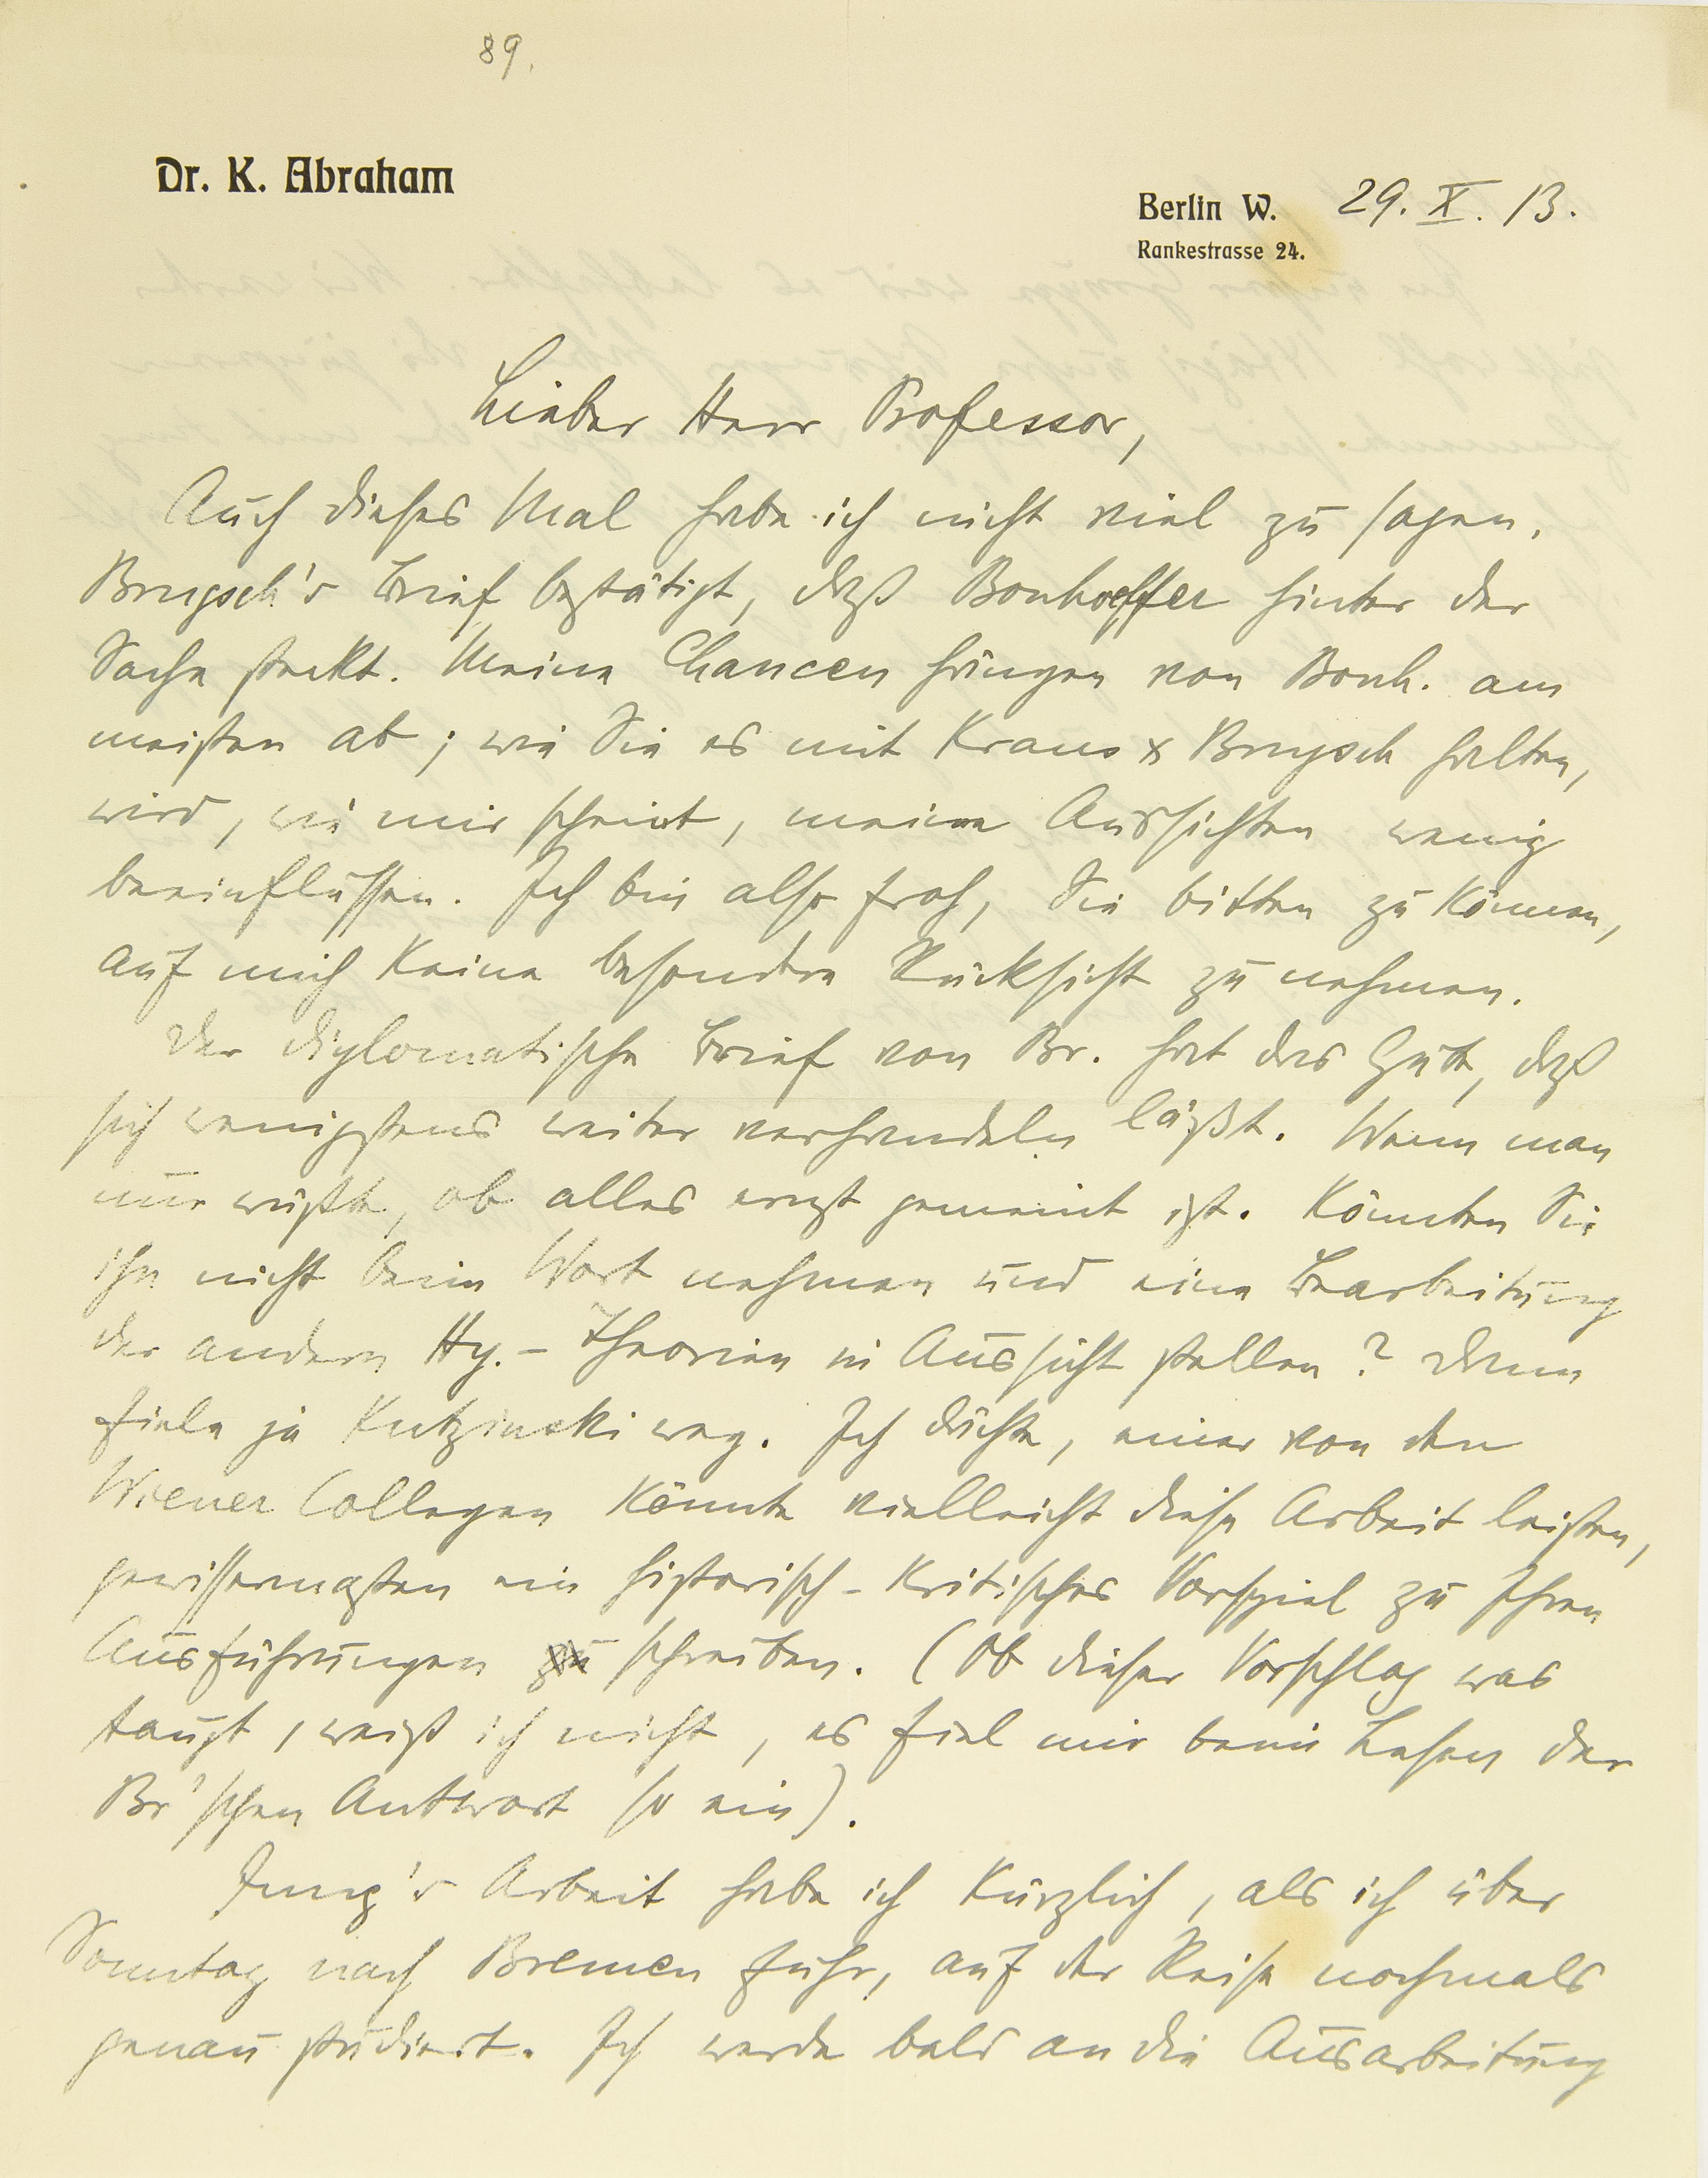 89.
Dr. K. Abraham
Berlin W. 29. X. 13.
Rankestrasse 24.
Lieber Herr Professor,
Auch dieses Mal habe ich nicht viel zu sagen.
Brugsch's Brief bestätigt, daß Bonhoeffer hinter der
Sache steckt. Meine Chancen hängen von Bonh. am
meisten ab; wie Sie es mit Kraus & Brugsch halten,
wird, wie mir scheint, meine Aussichten wenig
beeinflussen. Ich bin also froh, Sie bitten zu können,
auf mich keine besondere Rücksicht zu nehmen.
Der diplomatische Brief von Br. hat das Gute, daß
sich wenigstens weiter verhandeln läßt. Wenn man
nur wüßte, ob alles ernst gemeint ist. Könnten Sie
ihn nicht beim Wort nehmen und eine Bearbeitung
der andern Hy.-Theorien in Aussicht stellen? Dann
fiele ja Kutzinski weg. Ich dächte, einer von den
Wiener Collegen könnte vielleicht diese Arbeit leisten,
gewissermaßen ein historisch-kritisches Vorspiel zu Ihren
Ausführungen zu schreiben. (Ob dieser Vorschlag was
taugt, weiß ich nicht, es fiel mir beim Lesen der
Br'schen Antwort so ein).
Jung's Arbeit habe ich kürzlich, als ich über
Sonntag nach Bremen fuhr, auf der Reise nochmals
genau studiert. Ich werde bald an die Ausarbeitung